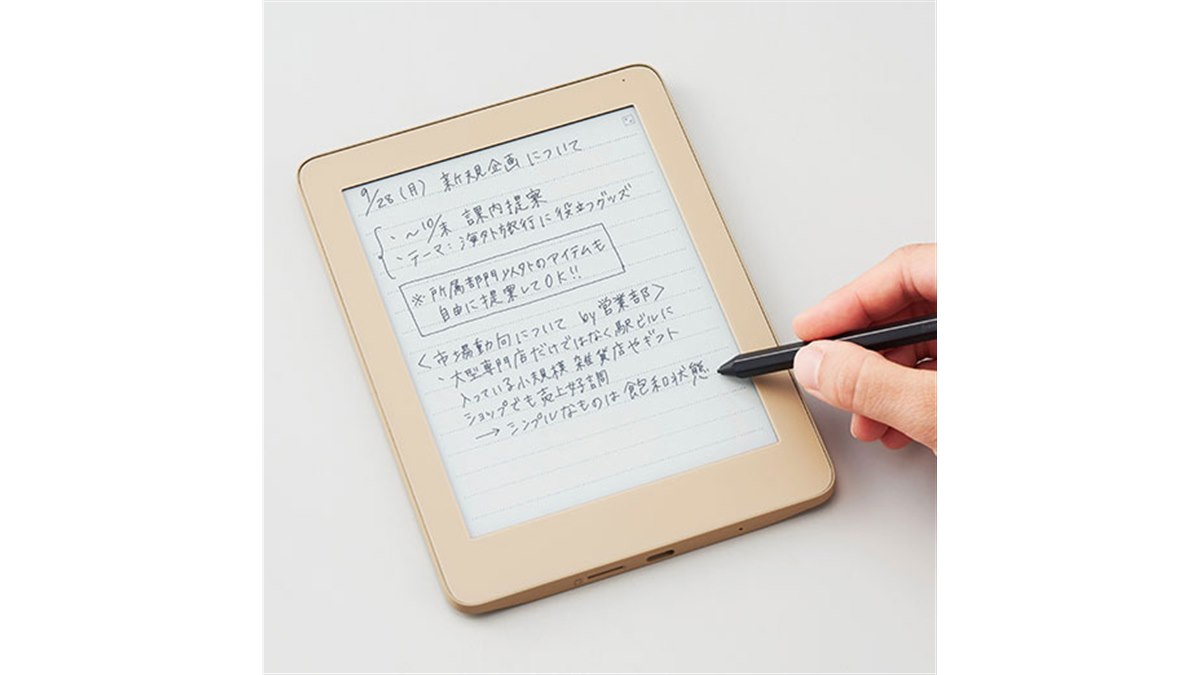 9/28(月) 新規企画について
・~10/末 課内提案
・テーマ:海外旅行に役立つグッズ
※所属部門以外のアイテムも
自由に提案してOK!!
<市場動向について by営業部>
・大型専門店だけではなく駅ビルに
入っている小規模雑貨店やギフト
ショップでも売上好調
→シンプルなものは飽和状態